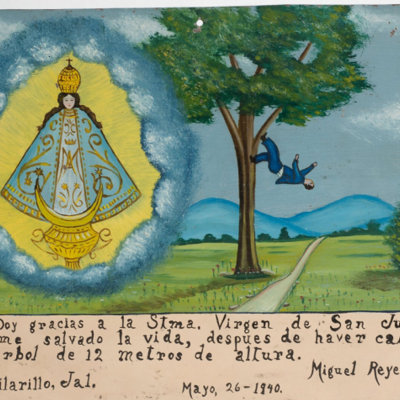 Doy gracias a la Stma. Virgen de San Ju
me salvado la vida, despues de haver ca
rbol de 12 metros de altura.
Miguel Reye
ilarillo, Jal.
Mayo, 26-1940.